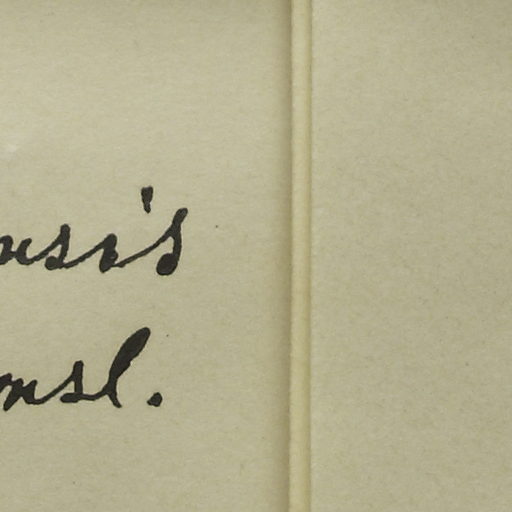 nsis
msl.